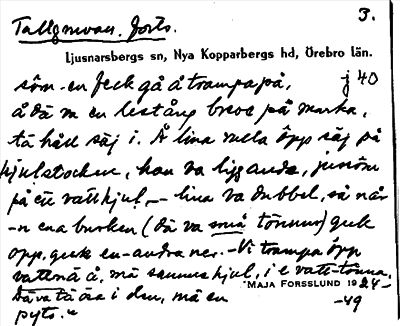 Tallgruvan. forts. 3.
Ljusnarsbergs sn, Nya Kopparbergs hd, Örebro län.
söm en feck gå å trampa på, j 40
å dä va en lestång brevé på marka,
tå håll säj i. Å lina rulla öpp säj på
hjulstocken, han va liggande, jussöm
på ett vattuhjul. – lina va dubbel, så når
-n ena burken (dä va små tönnur) gick
öpp, gick en-andra ner. – Vi trampa öpp
vattnä å, mä samma hjul, i e vatt-tönna.
MAJA FORSSLUND 1924-
Dä va tå ösa i den, mä en -49
pyts."